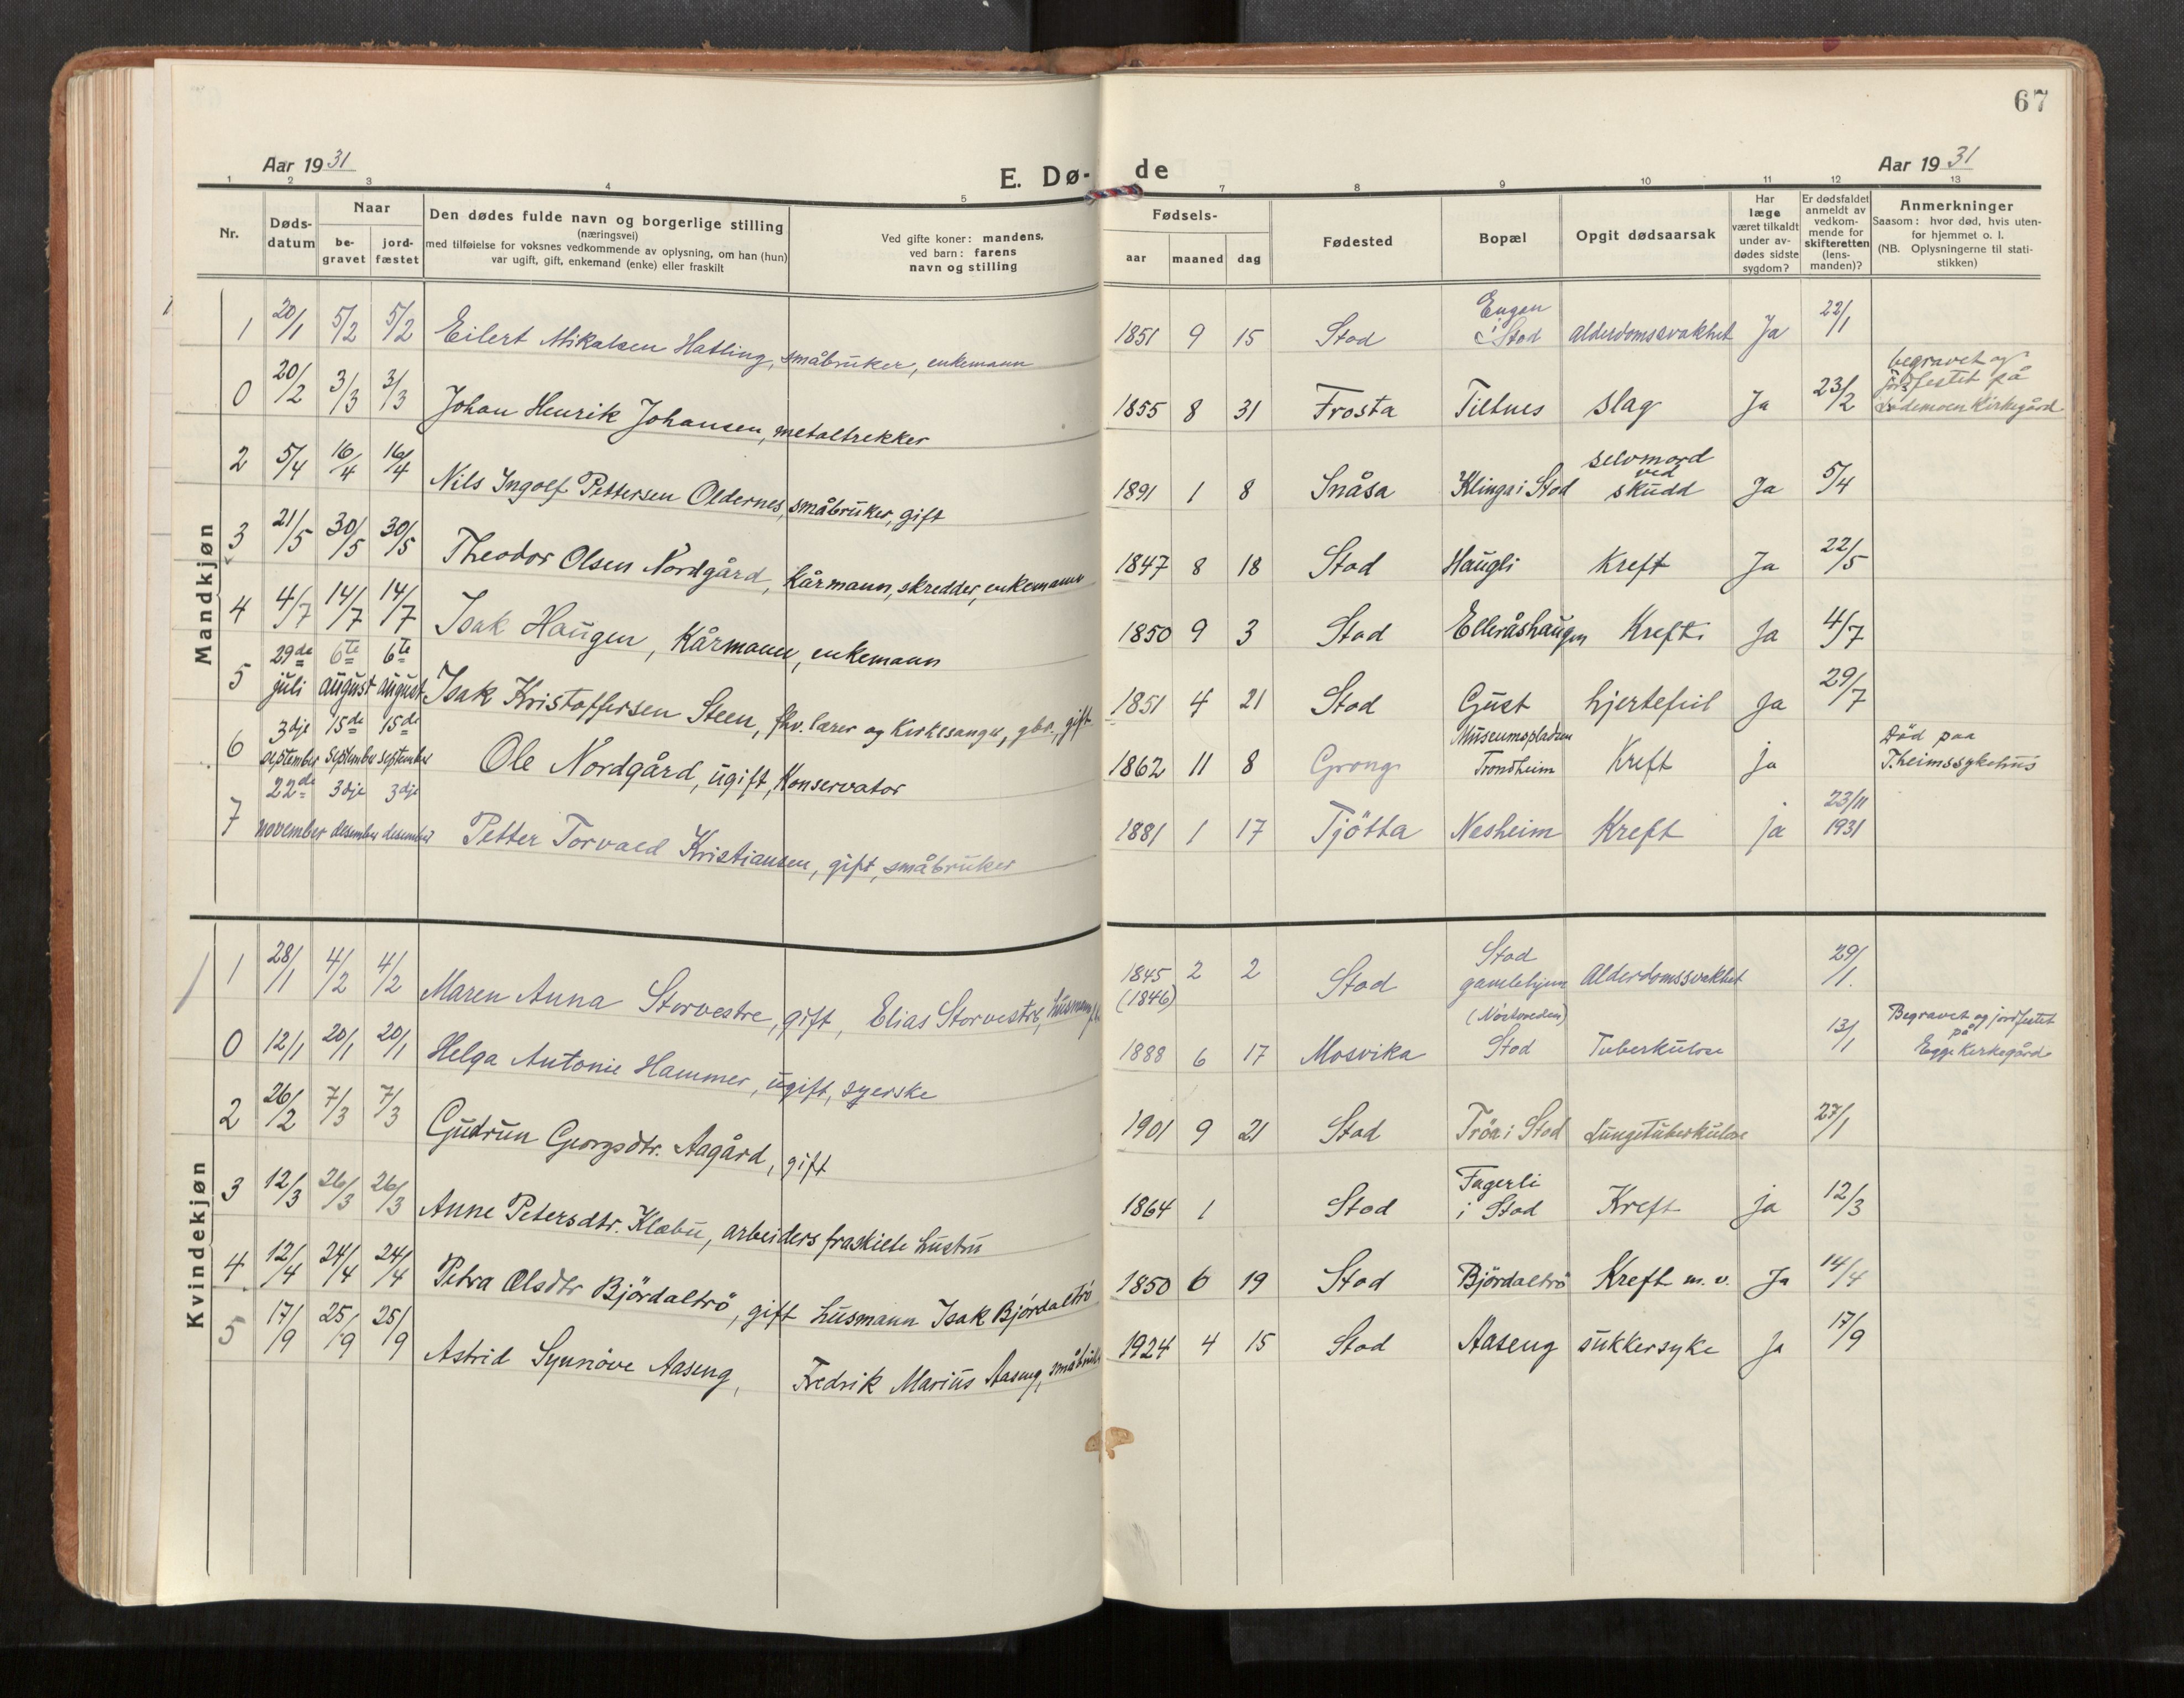 67
Aar 1931
E. Dø-de
Aar 1931
1 2 3 4 5 7 8 9 10 11 12 13
Nr.
Døds-
datum
Naar
be-
gravet
jord-
fæstet
Den dødes fulde navn og borgerlige stilling
(næringsvei)
med tilføielse for voksnes vedkommende av oplysning, om han (hun)
var ugift, gift, enkemand (enke) eller fraskilt
Ved gifte koner: mandens,
ved barn: farens
navn og stilling
Fødsels-
aar maaned dag
Fødested
Bopæl
Opgit dødsaarsak
Har
læge
været tilkaldt
under av-
dødes sidste
sygdom?
Er dødsfaldet
anmeldt av
vedkom-
mende for
skifteretten
(lens-
manden)?
Anmerkninger
Saasom: hvor død, hvis uten-
for hjemmet o. l.
(NB. Oplysningerne til stati-
stikken)
Mandkjøn
1 20/1 5/2 5/2 Eilert Mikalsen Hatling, småbruker, enkemann 1851 9 15 Stod Engen i Stod Alderdomssvakhet Ja 22/1
0 20/2 3/3 3/3 Johan Henrik Johansen, metaltrekker 1855 8 31 Frosta Tiltnes slag Ja 23/2 begravet og jordfestet på Lademoen Kirkegård
2 5/4 16/4 16/4 Nils Ingolf Pettersen Oldernes, småbruker, gift 1891 1 8 Snåsa Klinga i Stod selvmord ved skudd Ja 5/4
3 21/5 30/5 30/5 Theodor Olsen Nordgård, Kårmann, skredder, enkemann 1847 8 18 Stod Haugli Kreft Ja 22/5
4 4/7 14/7 14/7 Isak Haugen, Kårmann, enkemann 1850 9 3 Stod Elleråshaugen Kreft Ja 4/7
5 29de juli 6te august 6te august Isak Kristoffersen Steen, fhv. lærer og Kirkesanger, gbr., gift 1851 4 21 Stod Gust hjertefeil Ja 29/7
6 3dje september 15de september 15de september Ole Nordgård, ugift, Konservator 1862 11 8 Grong Museumspladsen Trondheim Kreft ja Død paa T.heimssykehus
7 22de november 3dje desember 3dje desember Petter Torvald Kristiansen, gift, småbruker 1881 1 17 Tjötta Nesheim Kreft ja 23/11 1931
Kvindekjøn
1 28/1 4/2 4/2 Maren Anna Storvestre, gift, Elias Storvestre, husmann 1845 (1846) 2 2 Stod Stod gamlehjem Alderdomssvakhet 29/1.
0 12/1 20/1 20/1 Helga Antonie Hammer, ugift, syerske 1888 6 17 Mosvika Stod Tuberkulose 13/1 Begravet og jordfestet på Egge Kirkegård
2 26/2 7/3 7/3 Gudrun Georgsdtr. Aagård, gift 1901 9 21 Stod Tröa i Stod Lungetuberkulose 27/1
3 12/3 26/3 26/3 Anne Petersdtr. Klæbu, arbeiders fraskilte hustru 1864 1 Stod Fagerli i Stod Kreft ja 12/3
4 12/4 24/4 24/4 Petra Olsdtr Björdaltrö, gift husmann Isak Björdaltrö 1850 6 19 Stod Björdaltrö Kreft m.v. Ja 14/4
5 17/9 25/9 25/9 Astrid Synnöve Aaseng, Fredrik Marius Aaseng, småbruker 1924 4 15 Stod Aaseng sukkersyke Ja 17/9